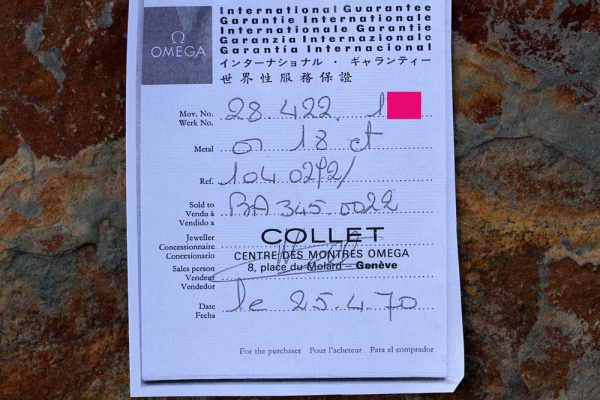 Ω
OMEGA
International Guarantee
Garantie Internationale
Internationale Garantie
Garanzia Internazionale
Garantía Internacional
インターナショナル・ギャランティー
世界性服務保證
Mov. No. 28.422.1
Werk No.
Metal or 18 ct
Ref. 104 0272/
Sold to BA 345.0022
Vendu à
Vendido a
Jeweller COLLET
Concessionnaire
Concesionario CENTRE DES MONTRES OMEGA
Sales person 8, place du Molard – Genève
Vendeur
Vendedor
Date le 25.4.70
Fecha
For the purchaser Pour l'acheteur Para el comprador